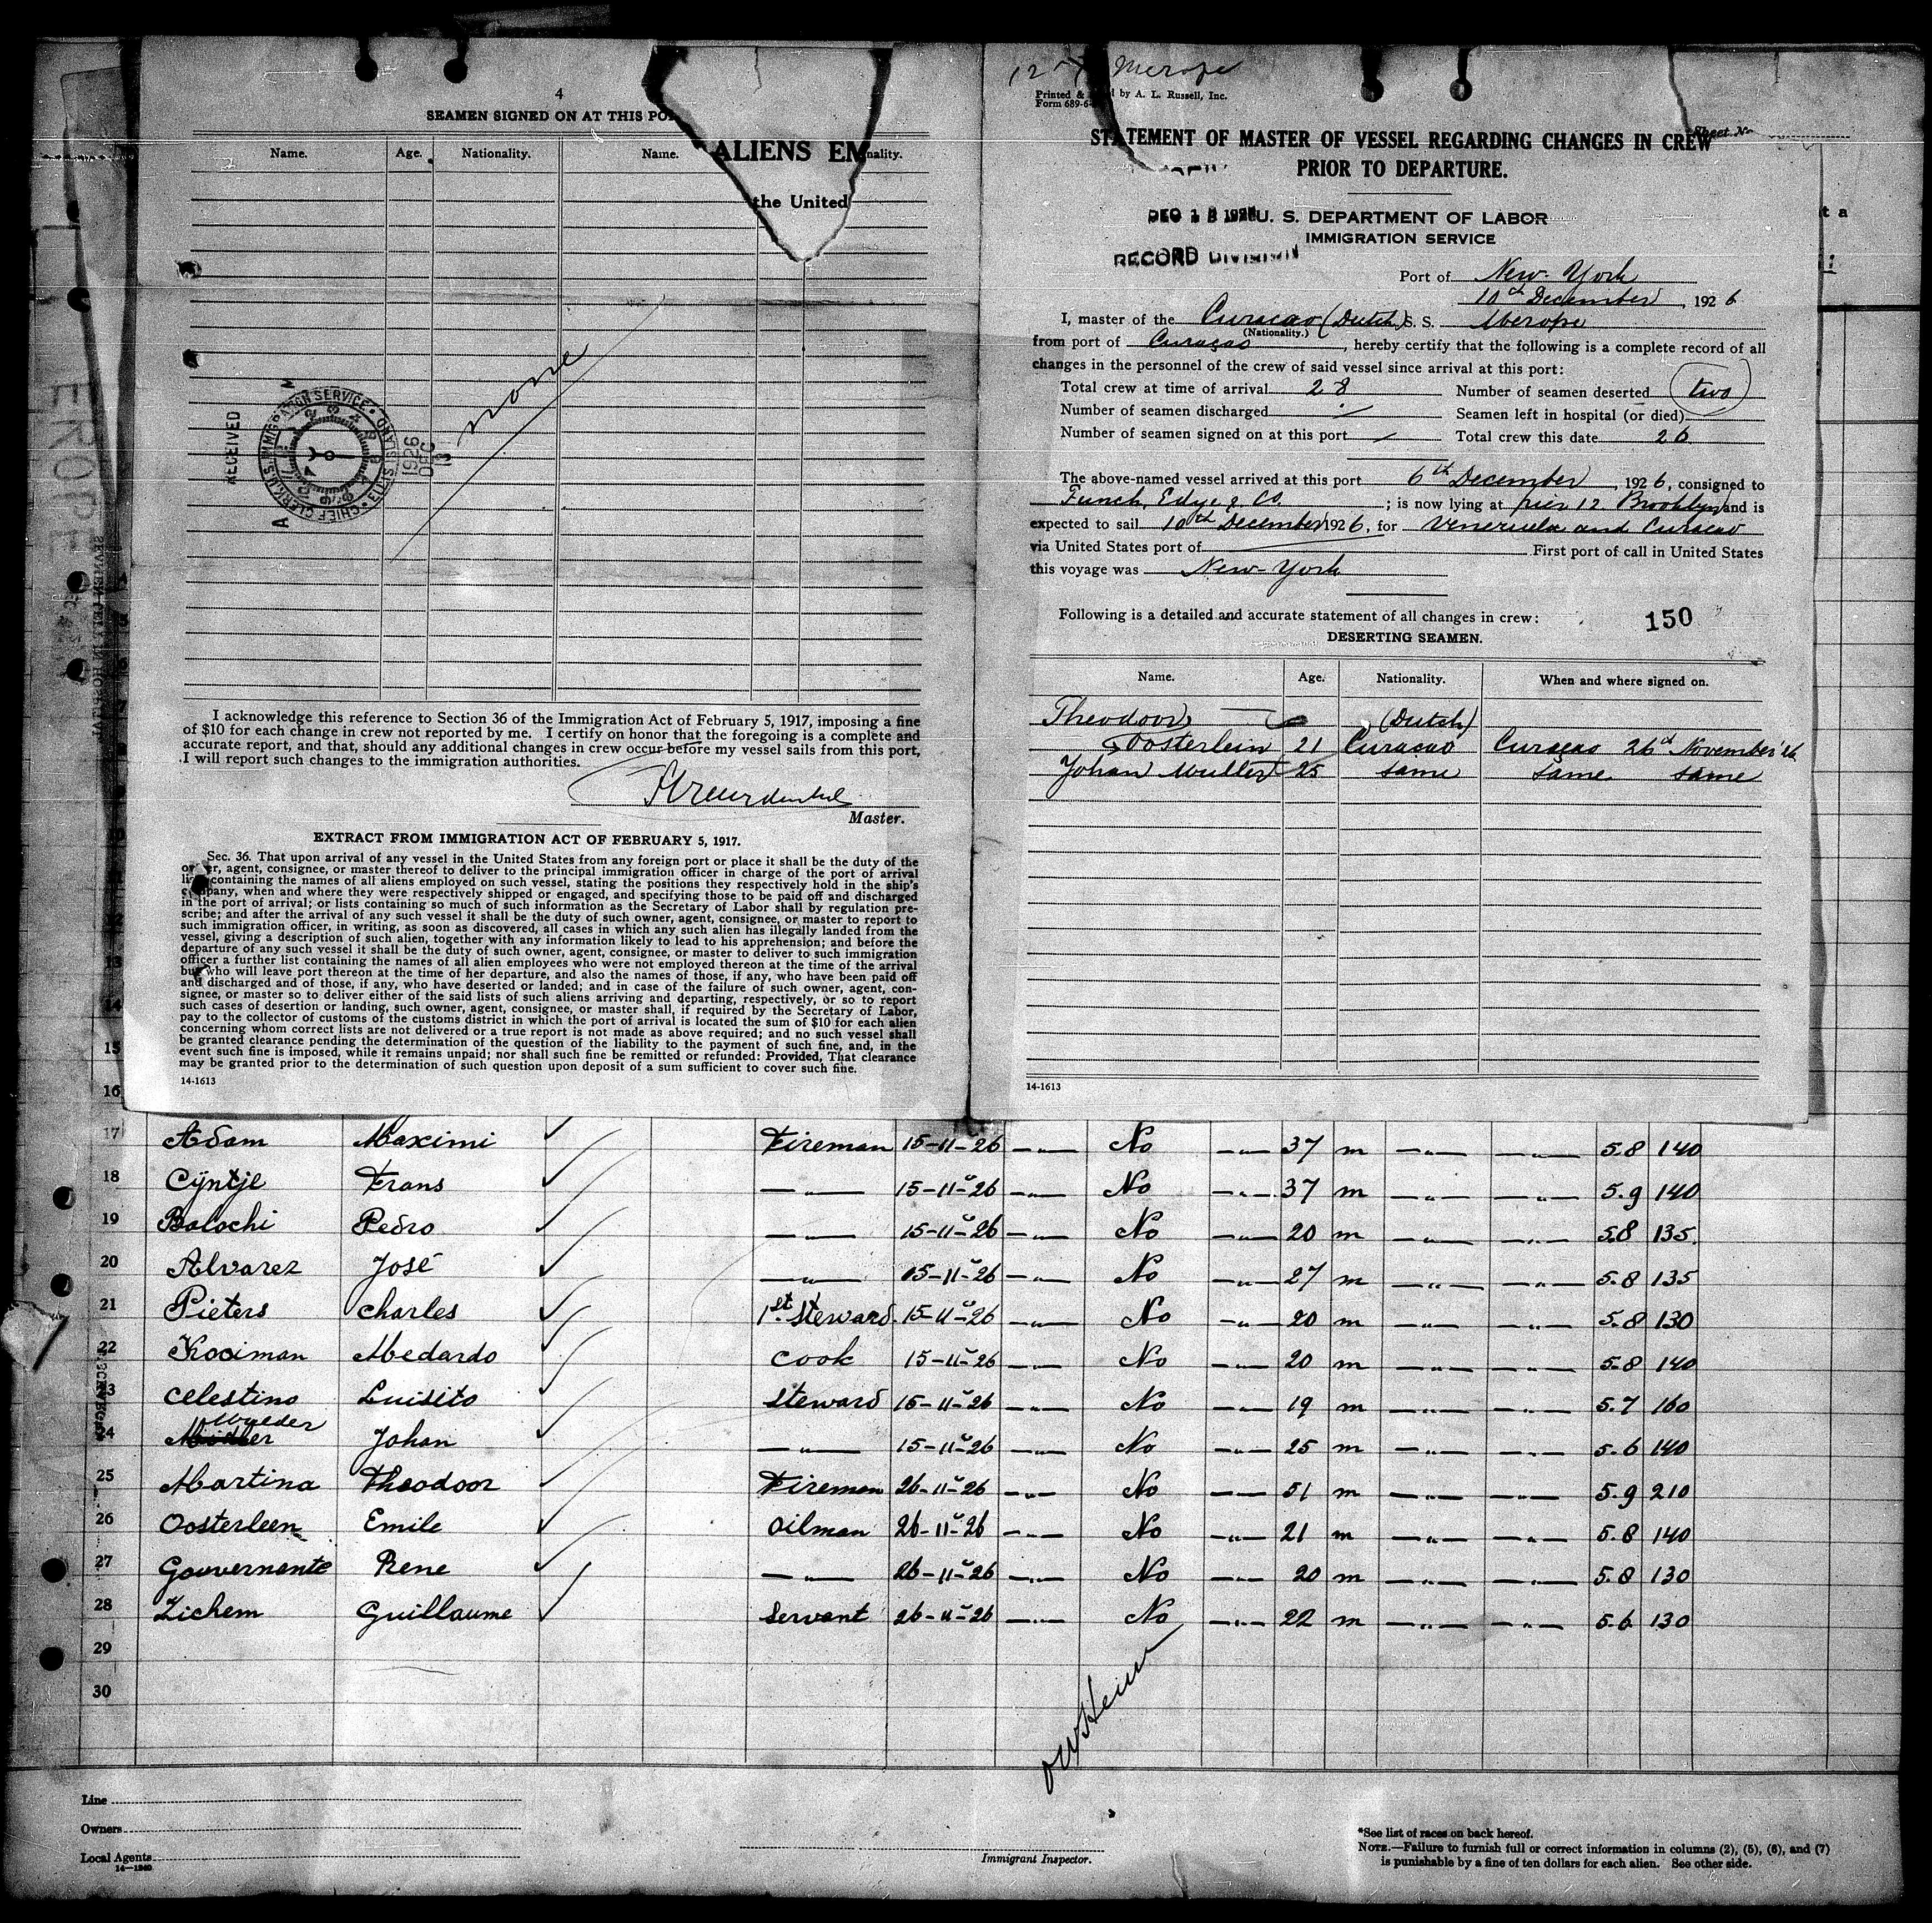 4
SEAMEN SIGNED ON AT THIS PO
Name. Age. Nationality. Name. nality.
ALIENS EM
the United
none
RECEIVED
CHIEF CLERK, U.S. IMMIGRATION SERVICE • ELLIS ISLAND
1926
DEC
13
I acknowledge this reference to Section 36 of the Immigration Act of February 5, 1917, imposing a fine
of $10 for each change in crew not reported by me. I certify on honor that the foregoing is a complete and
accurate report, and that, should any additional changes in crew occur before my vessel sails from this port,
I will report such changes to the immigration authorities.
Master.
EXTRACT FROM IMMIGRATION ACT OF FEBRUARY 5, 1917.
Sec. 36. That upon arrival of any vessel in the United States from any foreign port or place it shall be the duty of the
er, agent, consignee, or master thereof to deliver to the principal immigration officer in charge of the port of arrival
containing the names of all aliens employed on such vessel, stating the positions they respectively hold in the ship's
company, when and where they were respectively shipped or engaged, and specifying those to be paid off and discharged
in the port of arrival; or lists containing so much of such information as the Secretary of Labor shall by regulation pre-
scribe; and after the arrival of any such vessel it shall be the duty of such owner, agent, consignee, or master to report to
such immigration officer, in writing, as soon as discovered, all cases in which any such alien has illegally landed from the
vessel, giving a description of such alien, together with any information likely to lead to his apprehension; and before the
departure of any such vessel it shall be the duty of such owner, agent, consignee, or master to deliver to such immigration
officer a further list containing the names of all alien employees who were not employed thereon at the time of the arrival
but who will leave port thereon at the time of her departure, and also the names of those, if any, who have been paid off
and discharged and of those, if any, who have deserted or landed; and in case of the failure of such owner, agent, con-
signee, or master so to deliver either of the said lists of such aliens arriving and departing, respectively, or so to report
such cases of desertion or landing, such owner, agent, consignee, or master shall, if required by the Secretary of Labor,
pay to the collector of customs of the customs district in which the port of arrival is located the sum of $10 for each alien
concerning whom correct lists are not delivered or a true report is not made as above required; and no such vessel shall
be granted clearance pending the determination of the question of the liability to the payment of such fine, and, in the
event such fine is imposed, while it remains unpaid; nor shall such fine be remitted or refunded: Provided, That clearance
may be granted prior to the determination of such question upon deposit of a sum sufficient to cover such fine.
14-1613
Merope
Printed & by A. L. Russell, Inc.
Form 689-6
Sheet No
STATEMENT OF MASTER OF VESSEL REGARDING CHANGES IN CREW
PRIOR TO DEPARTURE.
DEC 18 1926 U. S. DEPARTMENT OF LABOR
IMMIGRATION SERVICE
RECORD DIVISION
Port of New-York
10th December, 1926
I, master of the Curacao (Dutch) S. S. Merope
(Nationality.)
from port of Curaçao, hereby certify that the following is a complete record of all
changes in the personnel of the crew of said vessel since arrival at this port:
Total crew at time of arrival 28 Number of seamen deserted two
Number of seamen discharged Seamen left in hospital (or died)
Number of seamen signed on at this port Total crew this date 26
The above-named vessel arrived at this port 6th December, 1926, consigned to
Funch, Edye & Co.; is now lying at pier 12 Brooklyn and is
expected to sail 10th December 1926, for Venezuela and Curacao
via United States port of First port of call in United States
this voyage was New-York
Following is a detailed and accurate statement of all changes in crew:
150
DESERTING SEAMEN.
Name. Age. Nationality. When and where signed on.
Theodoor (Dutch)
Oosterlein 21 Curacao Curaçao 26d November '26
Johan Muller 25 same same same
14-1613
EROPE
14
15
16
17 Adam Maximi Fireman 15-11-26 —"— No —"— 37 m —"— —"— 5.8 140
18 Cijntje Frans —"— 15-11-26 —"— No —"— 37 m —"— —"— 5.9 140
19 Balochi Pedro —"— 15-11-26 —"— No —"— 20 m —"— —"— 5.8 135.
20 Alvarez José —"— 15-11-26 —"— No —"— 27 m —"— —"— 5.8 135
21 Pieters Charles 1st. Steward. 15-11-26 —"— No —"— 20 m —"— —"— 5.8 130
22 Kooiman Medardo Cook 15-11-26 —"— No —"— 20 m —"— —"— 5.8 140
23 Celestino Luisito Steward 15-11-26 —"— No —"— 19 m —"— —"— 5.7 160
Mulder
24 Johan —"— 15-11-26 —"— No —"— 25 m —"— —"— 5.6 140
25 Martina Theodoor Fireman 26-11-26 —"— No —"— 51 m —"— —"— 5.9 210
26 Oosterleen Emile Oilman 26-11-26 —"— No —"— 21 m —"— —"— 5.8 140
27 Gouvernante Rene —"— 26-11-26 —"— No —"— 20 m —"— —"— 5.8 130
28 Zichem Guillaume Servant 26-11-26 —"— No —"— 22 m —"— —"— 5.6 130
29
30
Line
Owners
Local Agents
14—1240
Immigrant Inspector.
*See list of races on back hereof.
NOTE.—Failure to furnish full or correct information in columns (2), (5), (6), and (7)
is punishable by a fine of ten dollars for each alien. See other side.